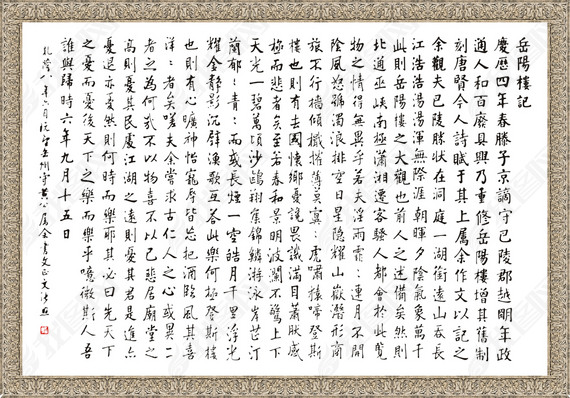 岳陽樓記
慶歷四年春滕子京謫守巴陵郡越明年政
通人和百廢具興乃重修岳陽樓增其舊制
刻唐賢今人詩賦于其上屬余作文以記之
余觀夫巴陵勝狀在洞庭一湖銜遠山吞長
江浩浩湯湯渾無際涯朝暉夕陰氣象萬千
此則岳陽樓之大觀也前人之述備矣然則
北通巫峽南極瀟湘遷客騷人都會於此覽
物之情得無異乎若夫淫雨霏:連月不開
陰風怒號濁浪排空日星隱耀山嶽潛形商
旅不行檣傾檝摧薄莫冥:虎嘯猿啼登斯
樓也則有去國懷鄉憂讒畏譏滿目蕭狀感
極而悲者矣至若春和景明波瀾不驚上下
天光一碧萬頃沙鷗翔集錦鱗游泳岸芷汀
蘭郁:青:而或長煙一空皓月千里浮光
耀金靜影沉璧漁歌互答此樂何極登斯樓
也則有心曠神怡寵辱皆忘把酒臨風其喜
洋:者矣嗟夫余嘗求古仁人之心或異二
者之為何哉不以物喜不以己悲居廟堂之
高則憂其民處江湖之遠則憂其君是進亦
憂退亦憂然則何時而樂耶其必曰先天下
之憂而憂後天下之樂而樂乎噫微斯人吾
誰與歸時六年九月十五日